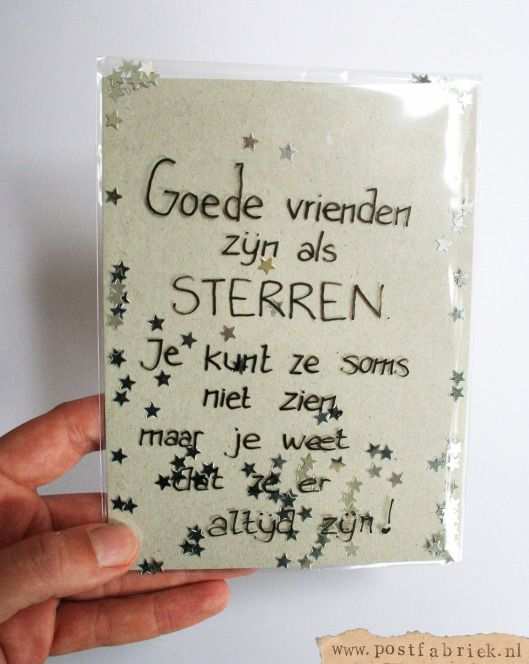 Goede vrienden
zijn als
STERREN.
Je kunt ze soms
niet zien,
maar je weet
dat ze er
altijd zijn!
www.postfabriek.nl